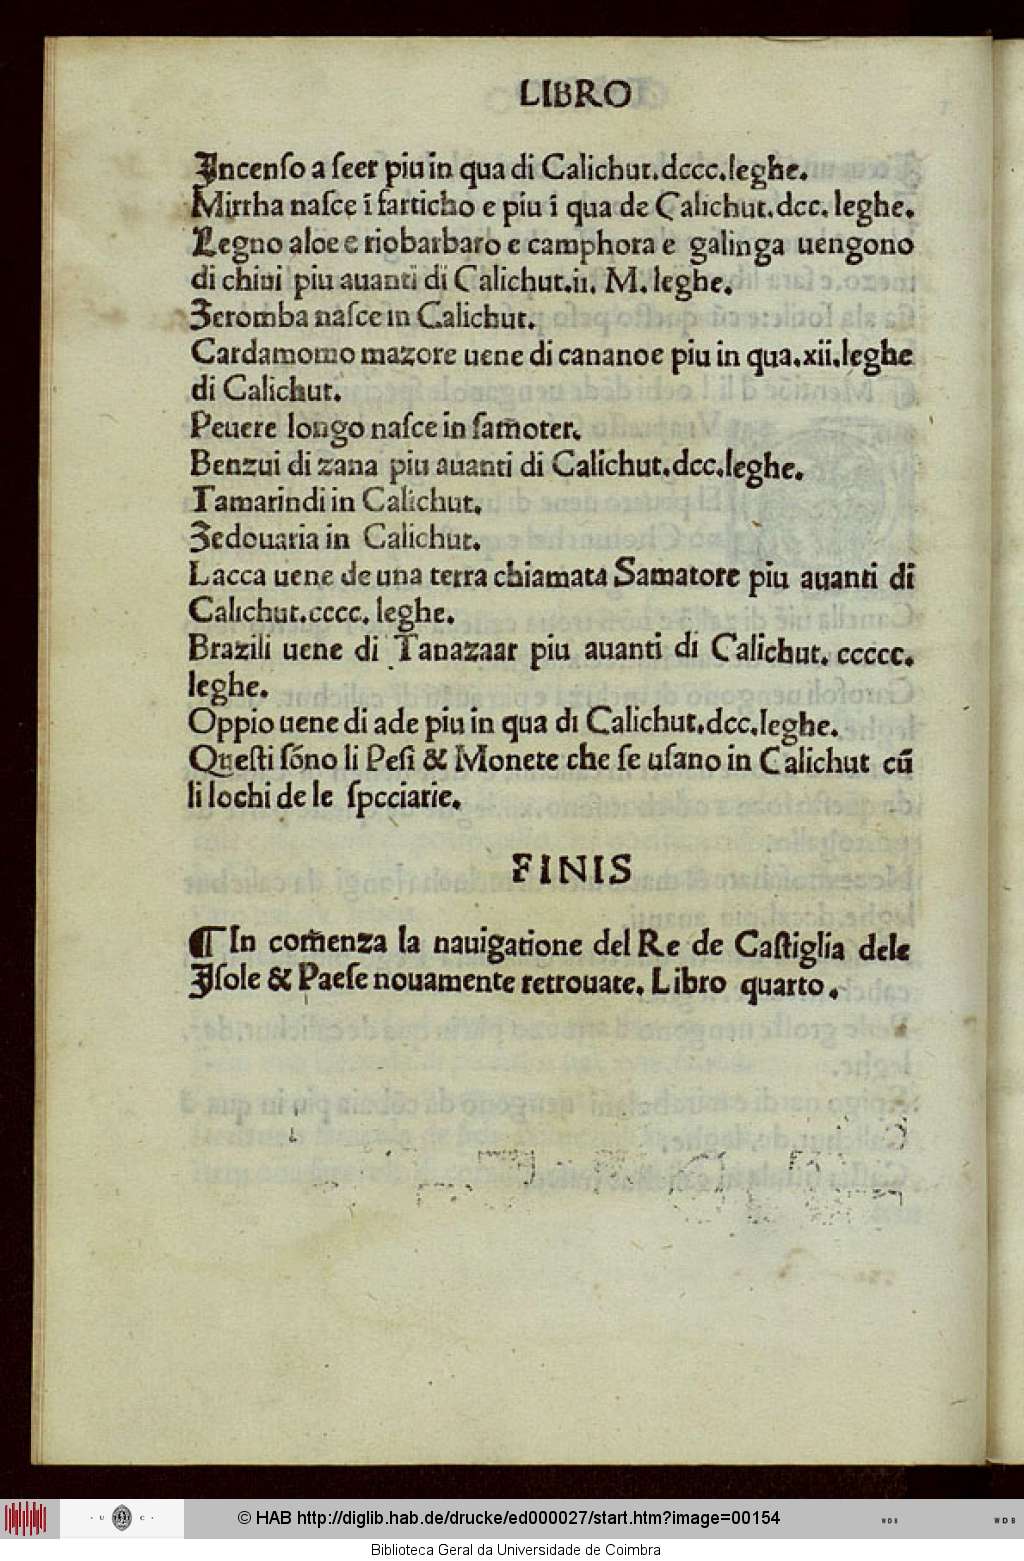 LIBRO
Incenſo a ſeer piu in qua di Calichut.dccc.leghe.
Mirrha naſce ī farticho e piu ī qua de Calichut.dcc. leghe.
Legno aloe e riobarbaro e camphora e galinga uengono
di chini piu auanti di Calichut.ii. M. leghe.
Zeromba naſce in Calichut.
Cardamomo mazore uene di cananoe piu in qua.xii.leghe
di Calichut.
Peuere longo naſce in ſam̄oter.
Benzui di zana piu auanti di Calichut.dcc.leghe.
Tamarindi in Calichut.
Zedouaria in Calichut.
Lacca uene de una terra chiamata Samatore piu auanti di
Calichut.cccc. leghe.
Brazili uene di Tanazaar piu auanti di Calichut. ccccc.
leghe.
Oppio uene di ade piu in qua di Calichut.dcc.leghe.
Queſti ſōno li Peſi & Monete che ſe uſano in Calichut cū
li lochi de le ſpeciarie.
FINIS
¶ In com̄enza la nauigatione del Re de Caſtiglia dele
Iſole & Paeſe nouamente retrouate. Libro quarto.
U C
© HAB http://diglib.hab.de/drucke/ed000027/start.htm?image=00154
WDB
WDB
Biblioteca Geral da Universidade de Coimbra